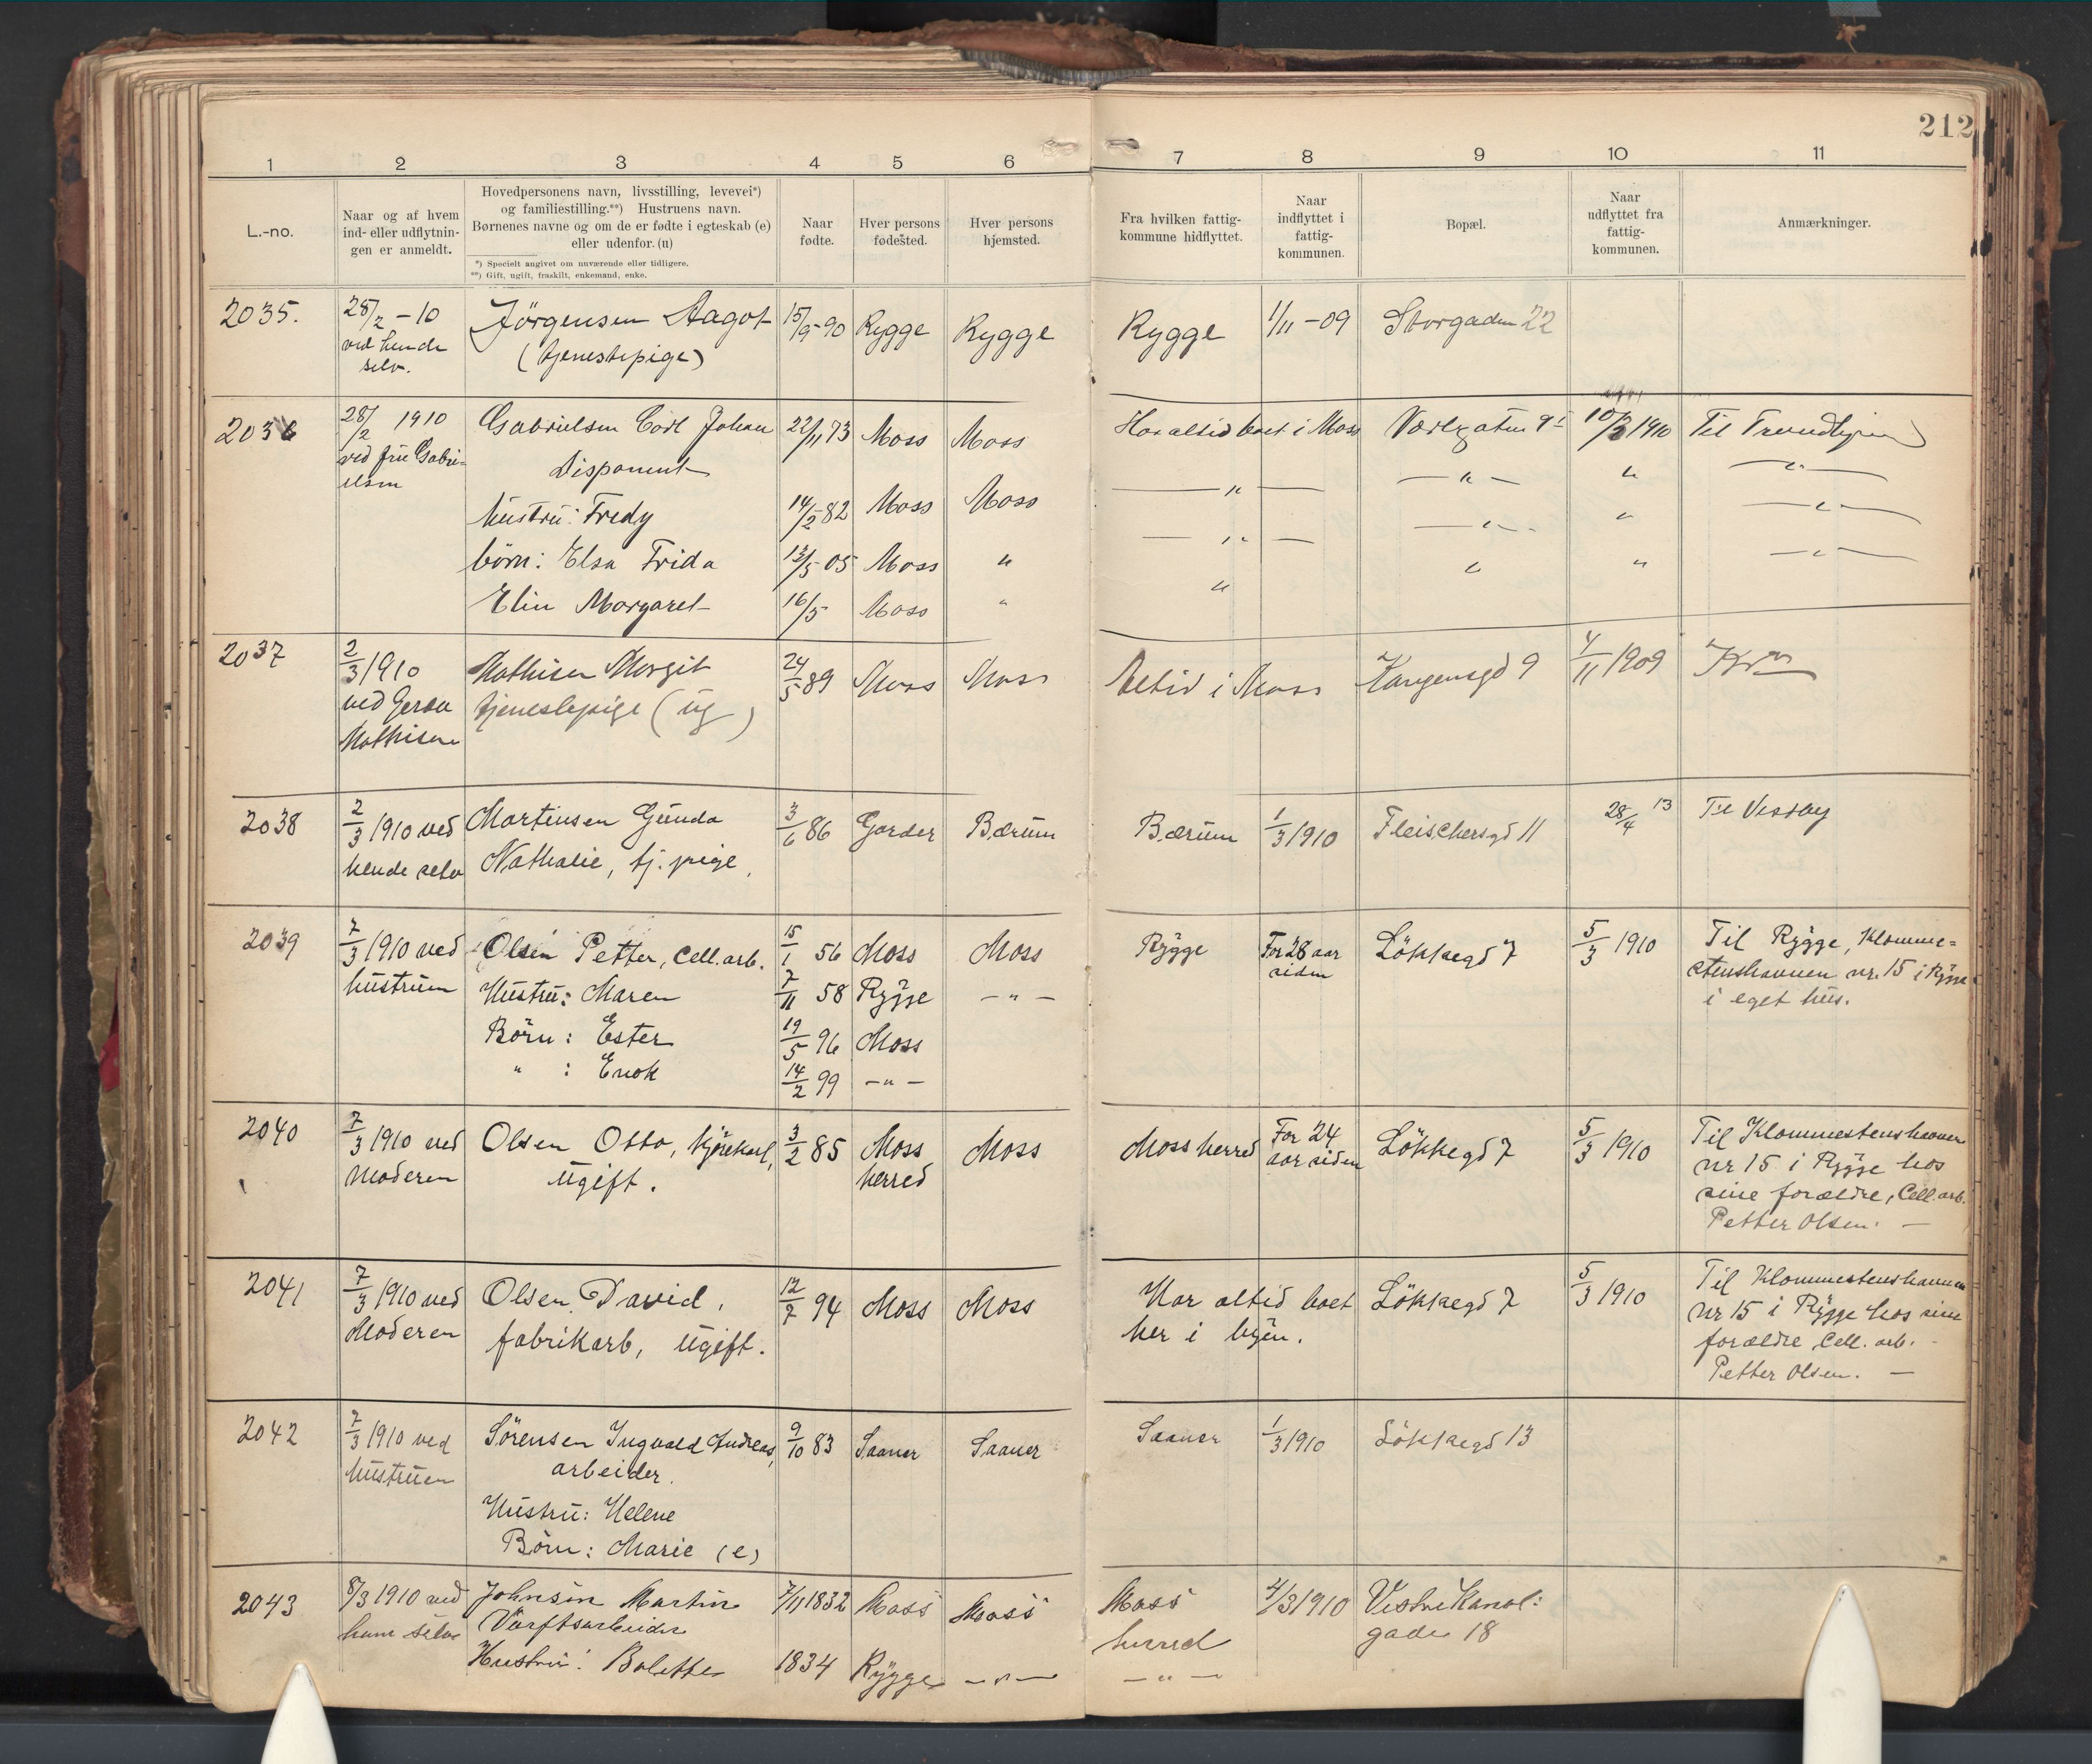 212
1 2 3 4 5 6 7 8 9 10 11
L.-no.
Naar og af hvem
ind- eller udflytnin-
gen er anmeldt.
Hovedpersonens navn, livsstilling, levevei*)
og familiestilling.**) Hustruens navn.
Børnenes navne og om de er fødte i egteskab (e)
eller udenfor. (u)
*) Specielt angivet om nuværende eller tidligere.
**) Gift, ugift, fraskilt, enkemand, enke.
Naar
fødte.
Hver persons
fødested.
Hver persons
hjemsted.
Fra hvilken fattig-
kommune hidflyttet.
Naar
indflyttet i
fattig-
kommunen.
Bopæl.
Naar
udflyttet fra
fattig-
kommunen.
Anmærkninger.
2035.
28/2 - 10
ved hende
selv.
Jörgensen Aagot
(tjenestepige)
15/9-90
Rygge
Rygge
Rygge
1/11 - 09
Storgaden 22
2036
28/2 1910
ved fru Gabri-
elsen
Gabrielsen Carl Johan
Disponent
hustru: Fredy
börn: Elsa Frida
Elin Margaret
22/11 73
14/2-82
13/5 05
16/5
Moss
Moss
Moss
Moss
Moss
Moss
"
"
Har altid boet i Moss
— " —
— " —
"
Værlegaten 9
— " —
— " —
"
10/3 1910
"
"
"
Til Trondhjem
— " —
— " —
— " —
2037
2/3 1910
ved
Mathisen
Mathisen Margit
tjenestepige (ug)
24/5 89
Moss
Moss
Altid i Moss
Kongensgd 9
1/11 1909
Kra
2038
2/3 1910 ved
hende selv
Martinsen Gunda
Nathalie, tj. pige,
3/6 86
Garder
Bærum
Bærum
1/3 1910
Fleischersgd 11
28/4 13
Til Vestby
2039
7/3 1910 ved
hustruen
Olsen Petter, Cell. arb.
Hustru: Maren
Börn: Ester
" : Enok
15/1 56
7/11 58
19/5 96
14/2 99
Moss
Rygge
Moss
— " —
Moss
— " —
Rygge
For 28 aar
siden
Lökkegd 7
5/3 1910
Til Rygge, Klomme=
stenshavnen nr. 15 i Rygge
i eget hus.
2040
7/3 1910 ved
moderen
Olsen Otto, kjörekarl,
ugift.
3/2 85
Moss
herred
Moss
Moss herred
For 24
aar siden
Lökkegd 7
5/3 1910
Til Klommestenshavnen
nr 15 i Rygge hos
sine forældre, Cell. arb.
Petter Olsen. —
2041
7/3 1910 ved
Moderen
Olsen David,
fabrikarb, ugift.
12/7 94
Moss
Moss
Har altid boet
her i byen.
Lökkegd 7
5/3 1910
Til Klommestenshavnen
nr 15 i Rygge hos sine
forældre Cell. arb. -
Petter Olsen. —
2042
7/3 1910 ved
hustruen
Sörensen Ingvald Andreas,
arbeider.
Hustru: Helene
Börn: Marie (e)
9/10 83
Saaner
Saaner
Saaner
1/3 1910
Lökkegd 13
2043
8/3 1910 ved
ham selv
Johnsen Martin
Værftsarbeider
Hustru: Bolette
7/11 1832
1834
Moss
Rygge
Moss
— " —
Moss
herred
— " —
4/3 1910
Vestre Kanal:
gaden 18